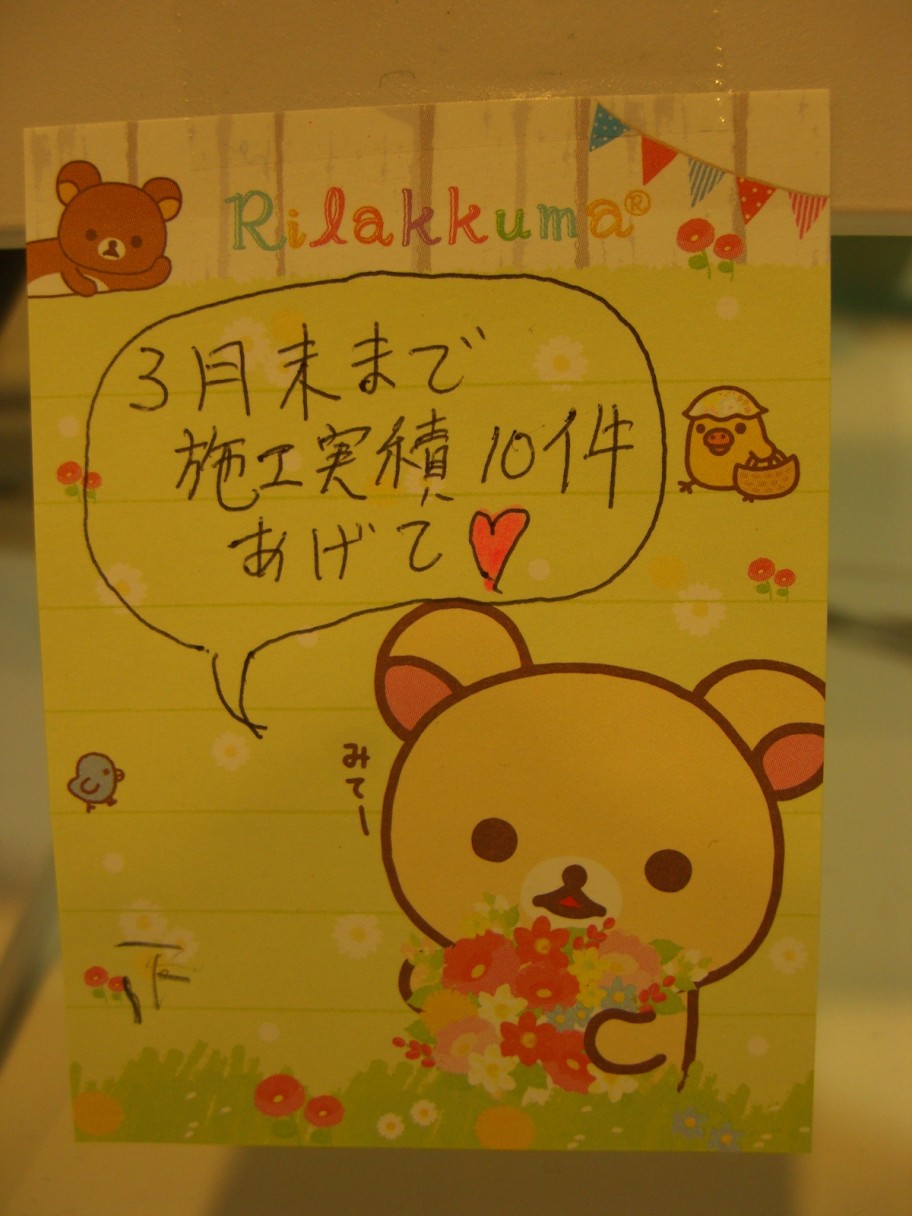 Rilakkuma®
3月末まで
施工実績10件
あげて
みてー